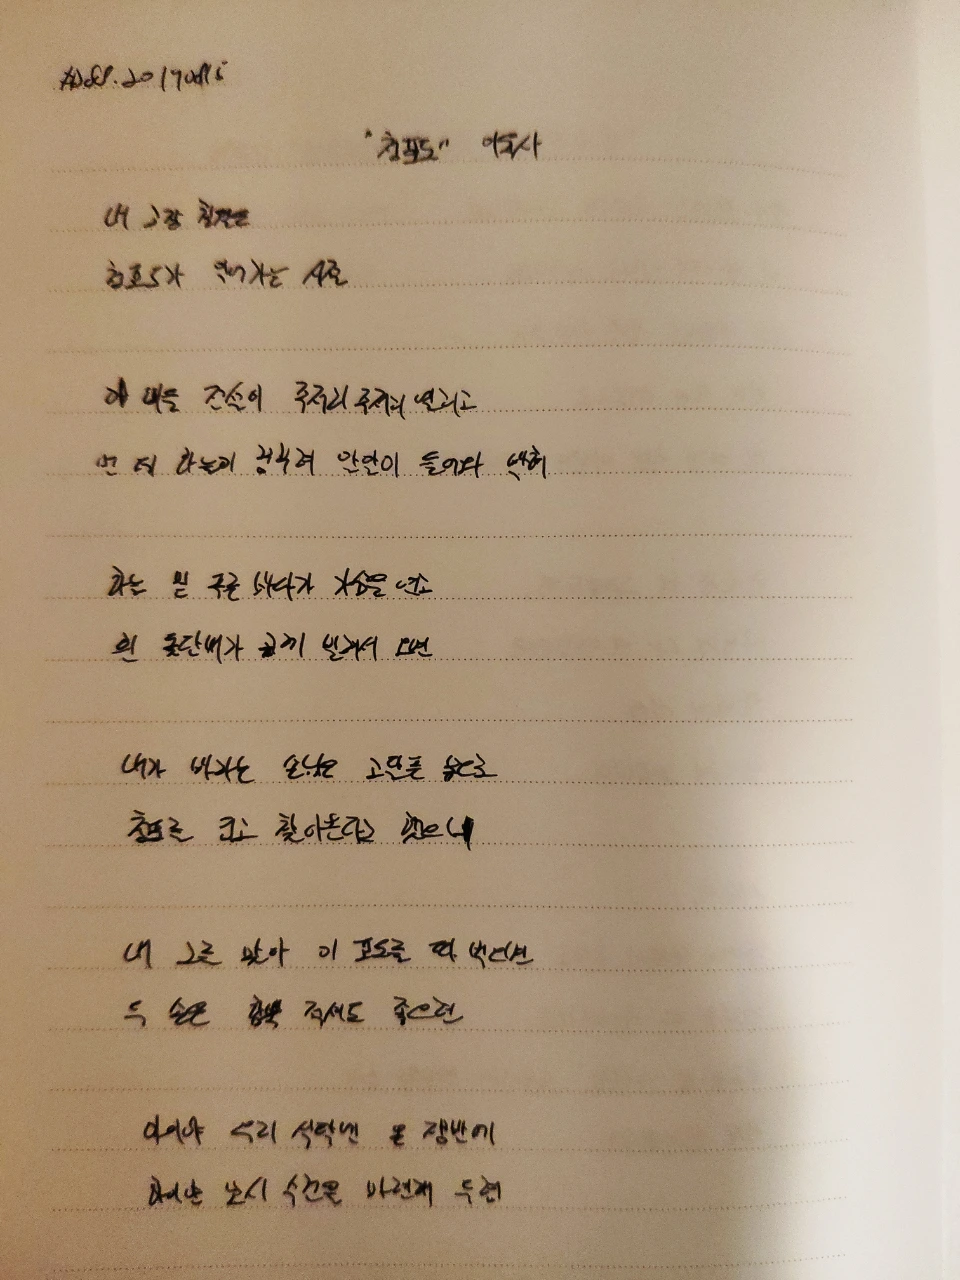 "청포도" 이육사
내 고장 칠월은
청포도가 익어가는 시절
이 마을 전설이 주저리주저리 열리고
먼 데 하늘이 꿈꾸려 알알이 들어와 박혀
하늘 밑 푸른 바다가 가슴을 열고
흰 돛단배가 곱게 밀려서 오면
내가 바라는 손님은 고달픈 몸으로
청포를 입고 찾아온다고 했으니
내 그를 맞아 이 포도를 따 먹으면
두 손은 함뿍 적셔도 좋으련
아이야 우리 식탁엔 은 쟁반에
하이얀 모시 수건을 마련해 두렴